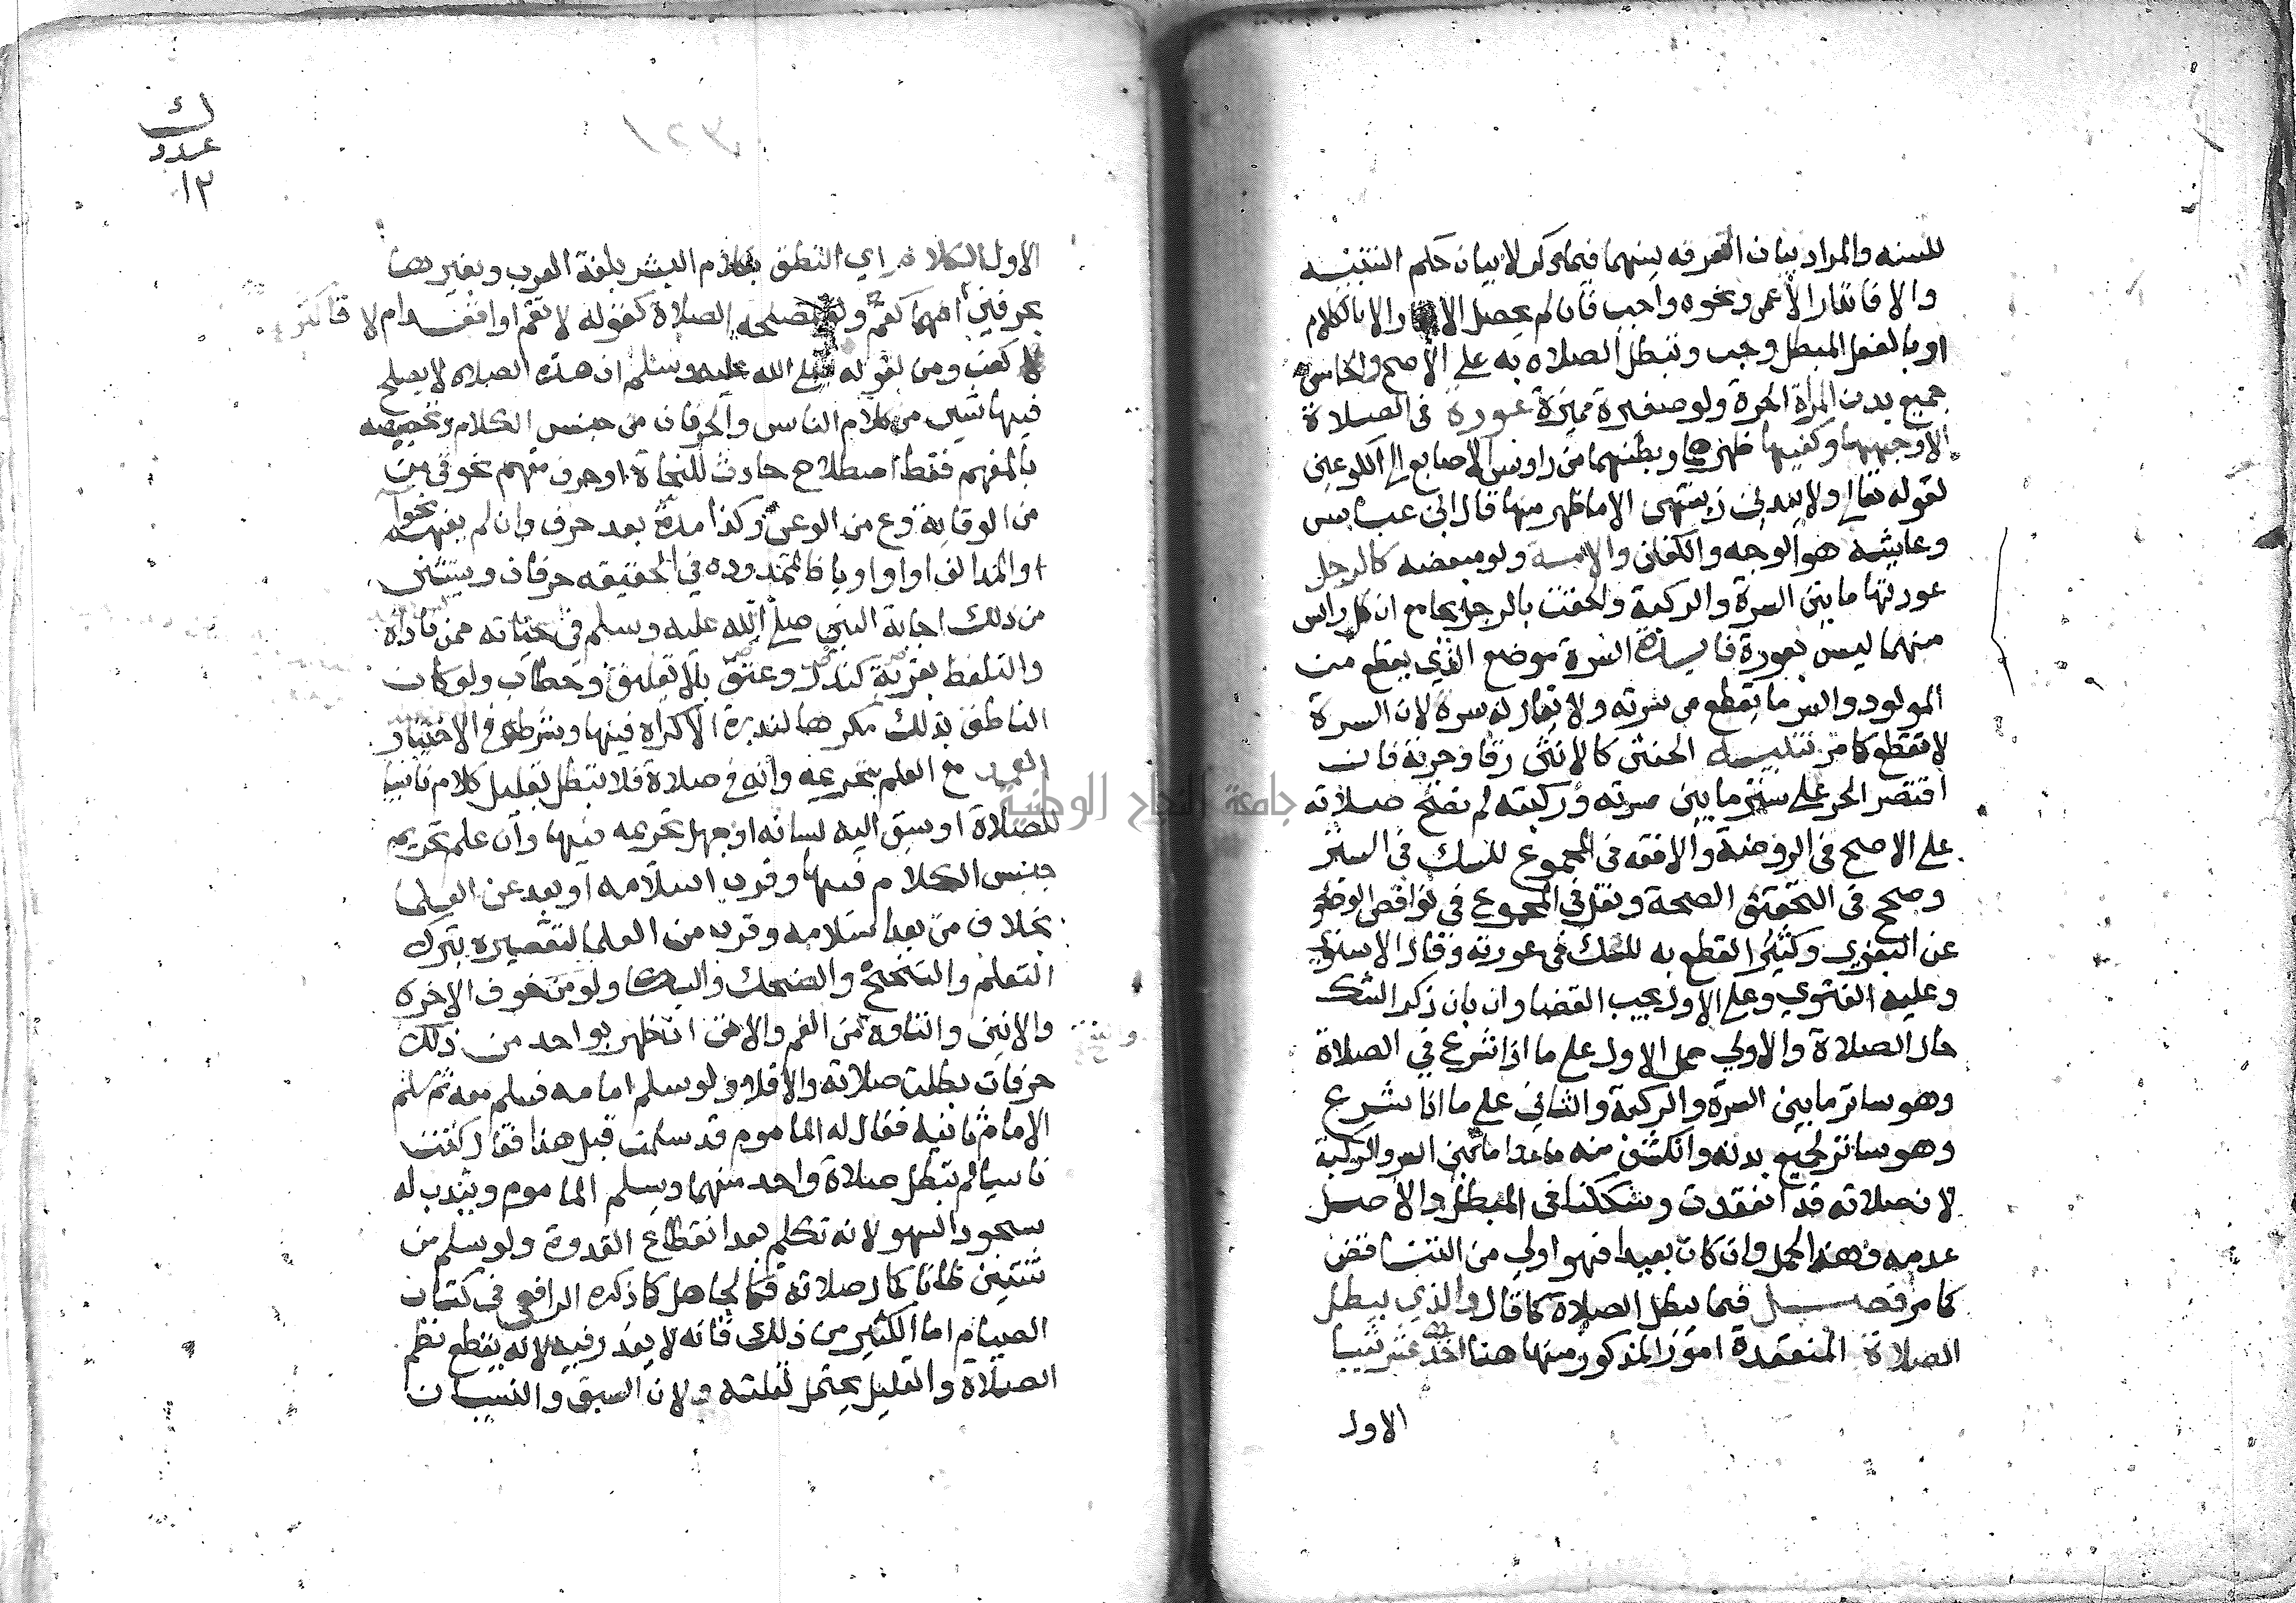 للسنه والمراد بيان التفرقه بينهما فيما ذكر لا بيان حكم التنبيه
والا فانذار الاعمى ونحوه واجب فان لم يحصل الانذار الا بالكلام
او بالفعل المبطل وجب وتبطل الصلاه به على الاصح والخامس
جميع بدن المراة الحرة ولو صغيرة مميزة عورة في الصلاة
الا وجهها وكفيها ظهرها وبطنهما من راوس الاصابع الى الكوعين
لقوله تعالى ولا يبدين زينتهن الا ما ظهر منها قال ابن عباس
وعايشه هو الوجه والكفان والامة ولو مبعضه كالرجل
عورتها ما بين السرة والركبة والحقت بالرجل بجامع ان كل راس
منهما ليس بعورة فايدة السرة موضع الذي يقطع من
المولود والسر ما يقطع من سرته ولا يقال له سرة لان السرة
لا تقطع كما مر تنبيه الخنثى كالانثى رقا وحرية فان
اقتصر الحر على ستر ما بين سرته وركبته لم تصح صلاته
على الاصح في الروضة والافقه في المجموع للشك في الستر
وصحح في التحقيق الصحة ونقل في المجموع في نواقض الوضو
عن البغوي وكثير القطع به للشك في عورته وقال الاسنوي
وعليه الفتوي وعلى الاول يجب القضا وان بان ذكرا للشك
حال الصلاة والاولي حمل الاول على ما اذا شرع في الصلاة
وهو ساتر ما بين السرة والركبة والثاني على ما اذا شرع
وهو ساتر لجميع بدنه وانكشف منه ما عدا ما بين السر والركبة
لان صلاته قد انعقدت وشككنا في المبطل والاصل
عدمه وهذا الحمل وان كان بعيدا فهو اولي من التناقض
كما مر فصل فيما يبطل الصلاة كما قال والذي يبطل
الصلاة المنعقدة امور المذكور منها هنا احد عشر شيا
الاول
ك
عدد
١٢
الاول الكلام اي النطق بكلام البشر بلغة العرب وبغيرها
بحرفين افهما كقم ولو لمصلحه الصلاة كقوله لا تقم او اقعد ام لا فاكثر
كعن ومن لقوله صلى الله عليه وسلم ان هذه الصلاه لا يصلح
فيها شي من كلام الناس والحرفان من جنس الكلام وتخصيصه
بالمفهم فقط اصطلاح حادث للنحاة او حرف مفهم نحو ق من
من الوقاية وع من الوعي وكذا مدة بعد حرف وان لم يفهم نحو آ
والمد الف او واو او يا فالممدوده في الحقيقه حرفان ويستثنى
من ذلك اجابة النبي صلى الله عليه وسلم في حياته ممن ناداه
والتلفظ بقربة كنذر وعتق بلا تعليق وخطاب ولو كان
الناطق بذلك مكرها لندرة الاكراه فيها وشرطه في الاختيار
العمد مع العلم بتحريمه وانه في صلاة فلا تبطل بقليل كلام ناسيا
للصلاة او سبق اليه لسانه او جهل تحريمه فيها وان علم تحريم
جنس الكلام فيها وقرب اسلامه او بعد عن العلما
بخلاف من بعد اسلامه وقرب من العلما لتقصيره بترك
التعلم والتنحنح والضحك والبكا ولو من خوف الاخرة
والانين والتاوه من الفم والانف ان ظهر بواحد من ذلك
حرفان بطلت صلاته والا فلا ولو سلم امامه فسلم معه ثم سلم
الامام ثانيه فقال له الماموم قد سلمت قبل هذا فقال كنت
ناسيا لم تبطل صلاة واحد منهما ويسلم الماموم ويندب له
سجود السهو لانه تكلم بعد انقطاع القدوة ولو سلم من
ثنتين ظانا كمال صلاته فكالجاهل كما ذكره الرافعي في كتاب
الصيام اما الكثير من ذلك فانه لا يعذر فيه لانه يقطع نظم
الصلاة والقليل يحتمل لقلته ولان السبق والنسيان
جامعة النجاح الوطنية